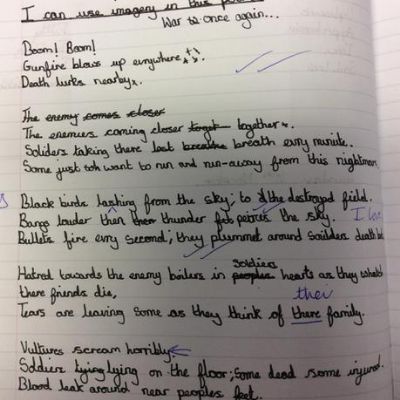 I can use imagery in this
War to once again...
Boom! Boom!
Gunfire blows up everywhere
Death lurks nearby.
The enemy comes closer
The enemies coming closer together.
Soliders taking there last breathe breath evry minite.
Some just want to run and run-away from this nightmare
Black birds lashing from the sky; to the destroyed field.
Bangs louder then thunder the sky. I
Bullets fire evry second; they plummet around death
Hatred towards the enemy boilers in peoples soldiers hearts as they watch
there friends die,
their
Tears are leaving some as they think of there family.
Vultures scream horribly
Soldiers lying on the floor; some dead some injured.
Blood leak around near peoples feet.